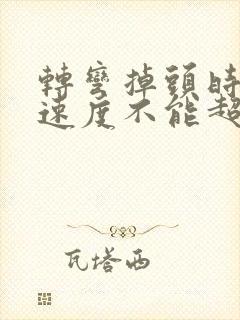 轉彎掉頭時
速度不能超
瓦塔西